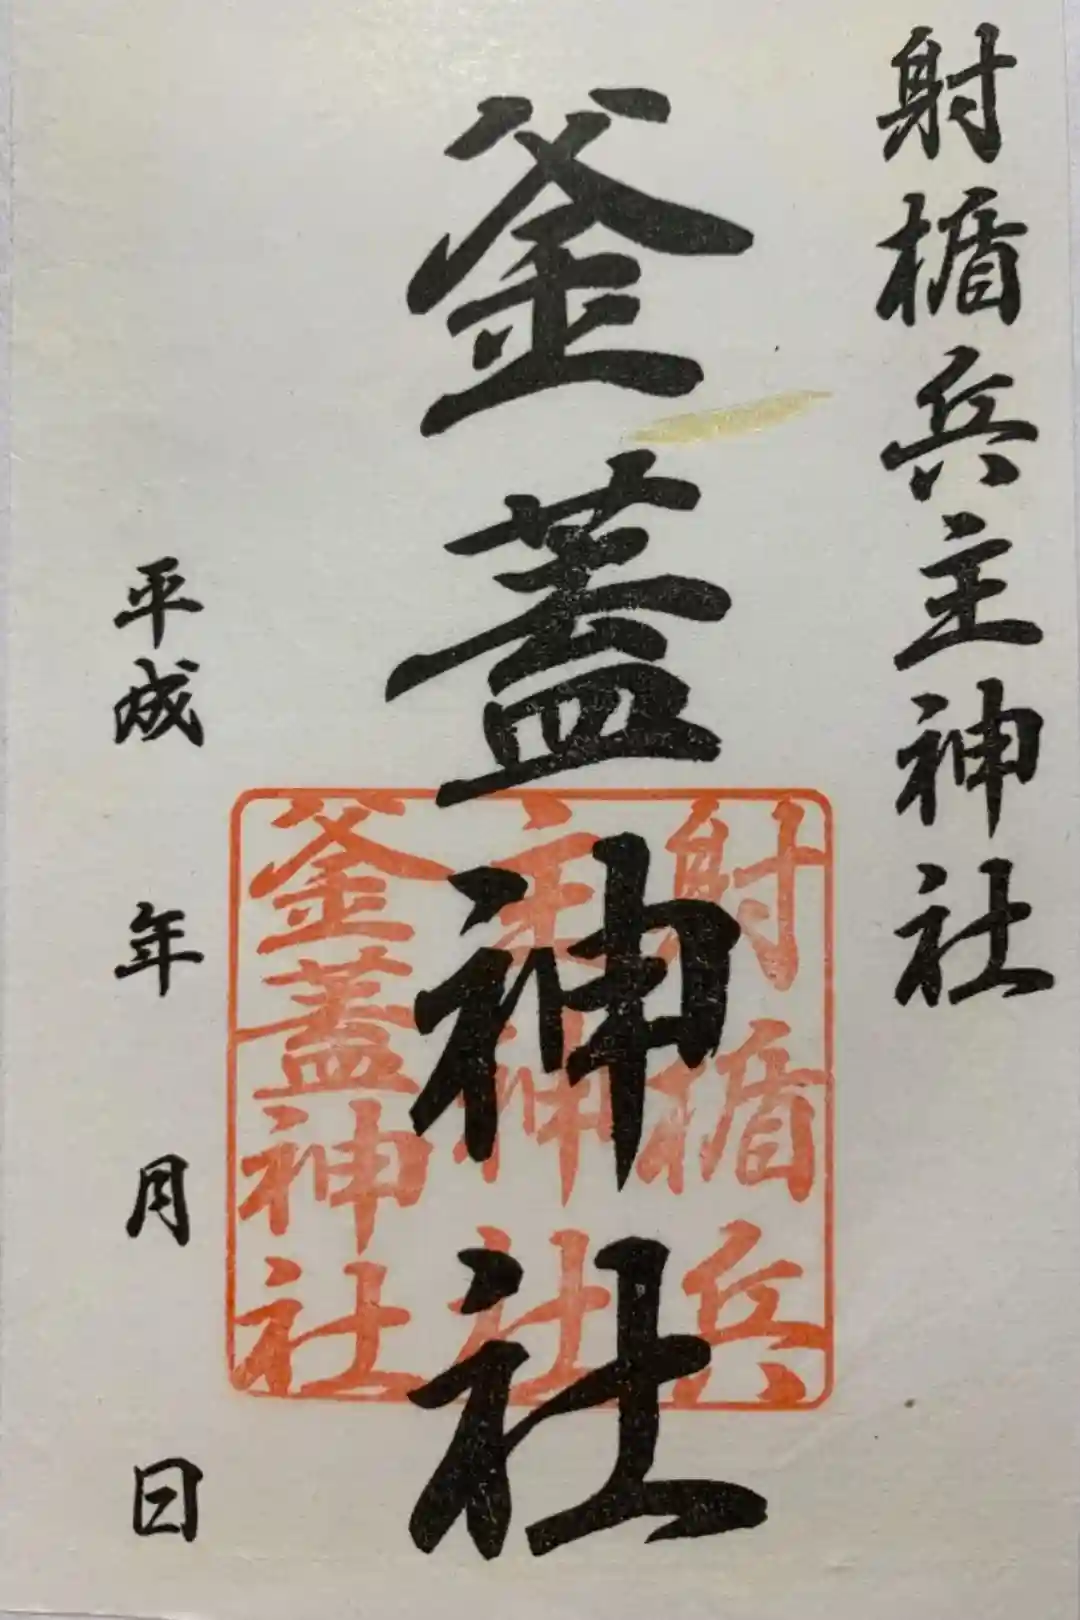 射楯兵主神社
釜蓋神社
平成 年 月 日
射楯兵
主神社
釜蓋神社